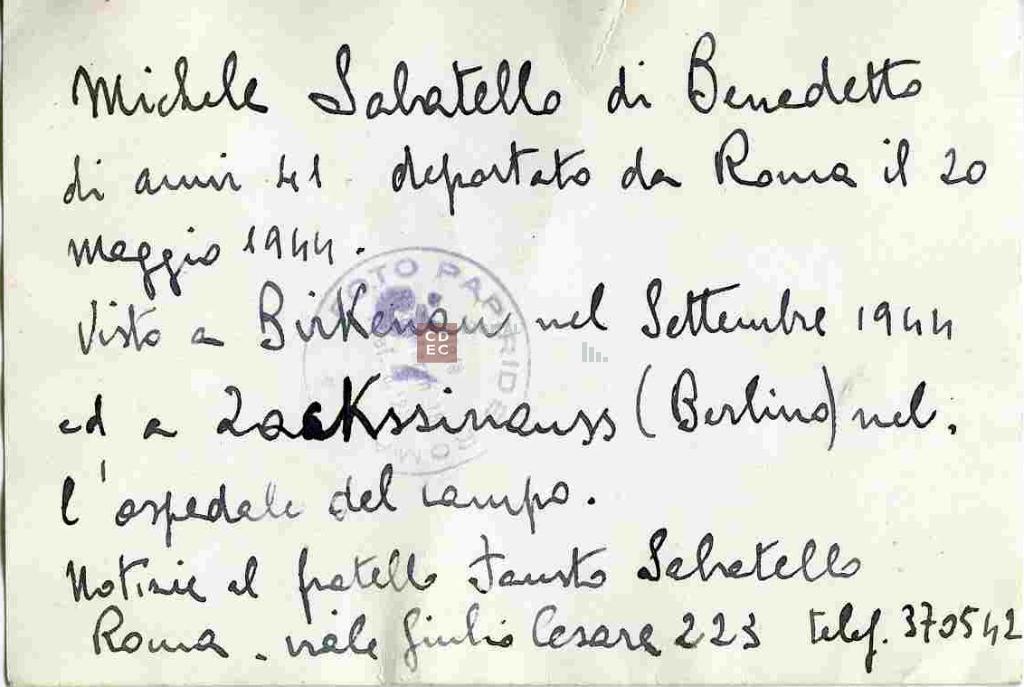 Michele Sabatello di Benedetto
di anni 41 deportato da Roma il 20
maggio 1944.
Visto a Birkenau nel Settembre 1944
ed a (Berlino) nel.
l'ospedale del campo.
Notizie al fratello Fausto Sabatello
Roma - viale Giulio Cesare 223 telef. 370542
FOTO PAPARID
ROMA
CD
EC